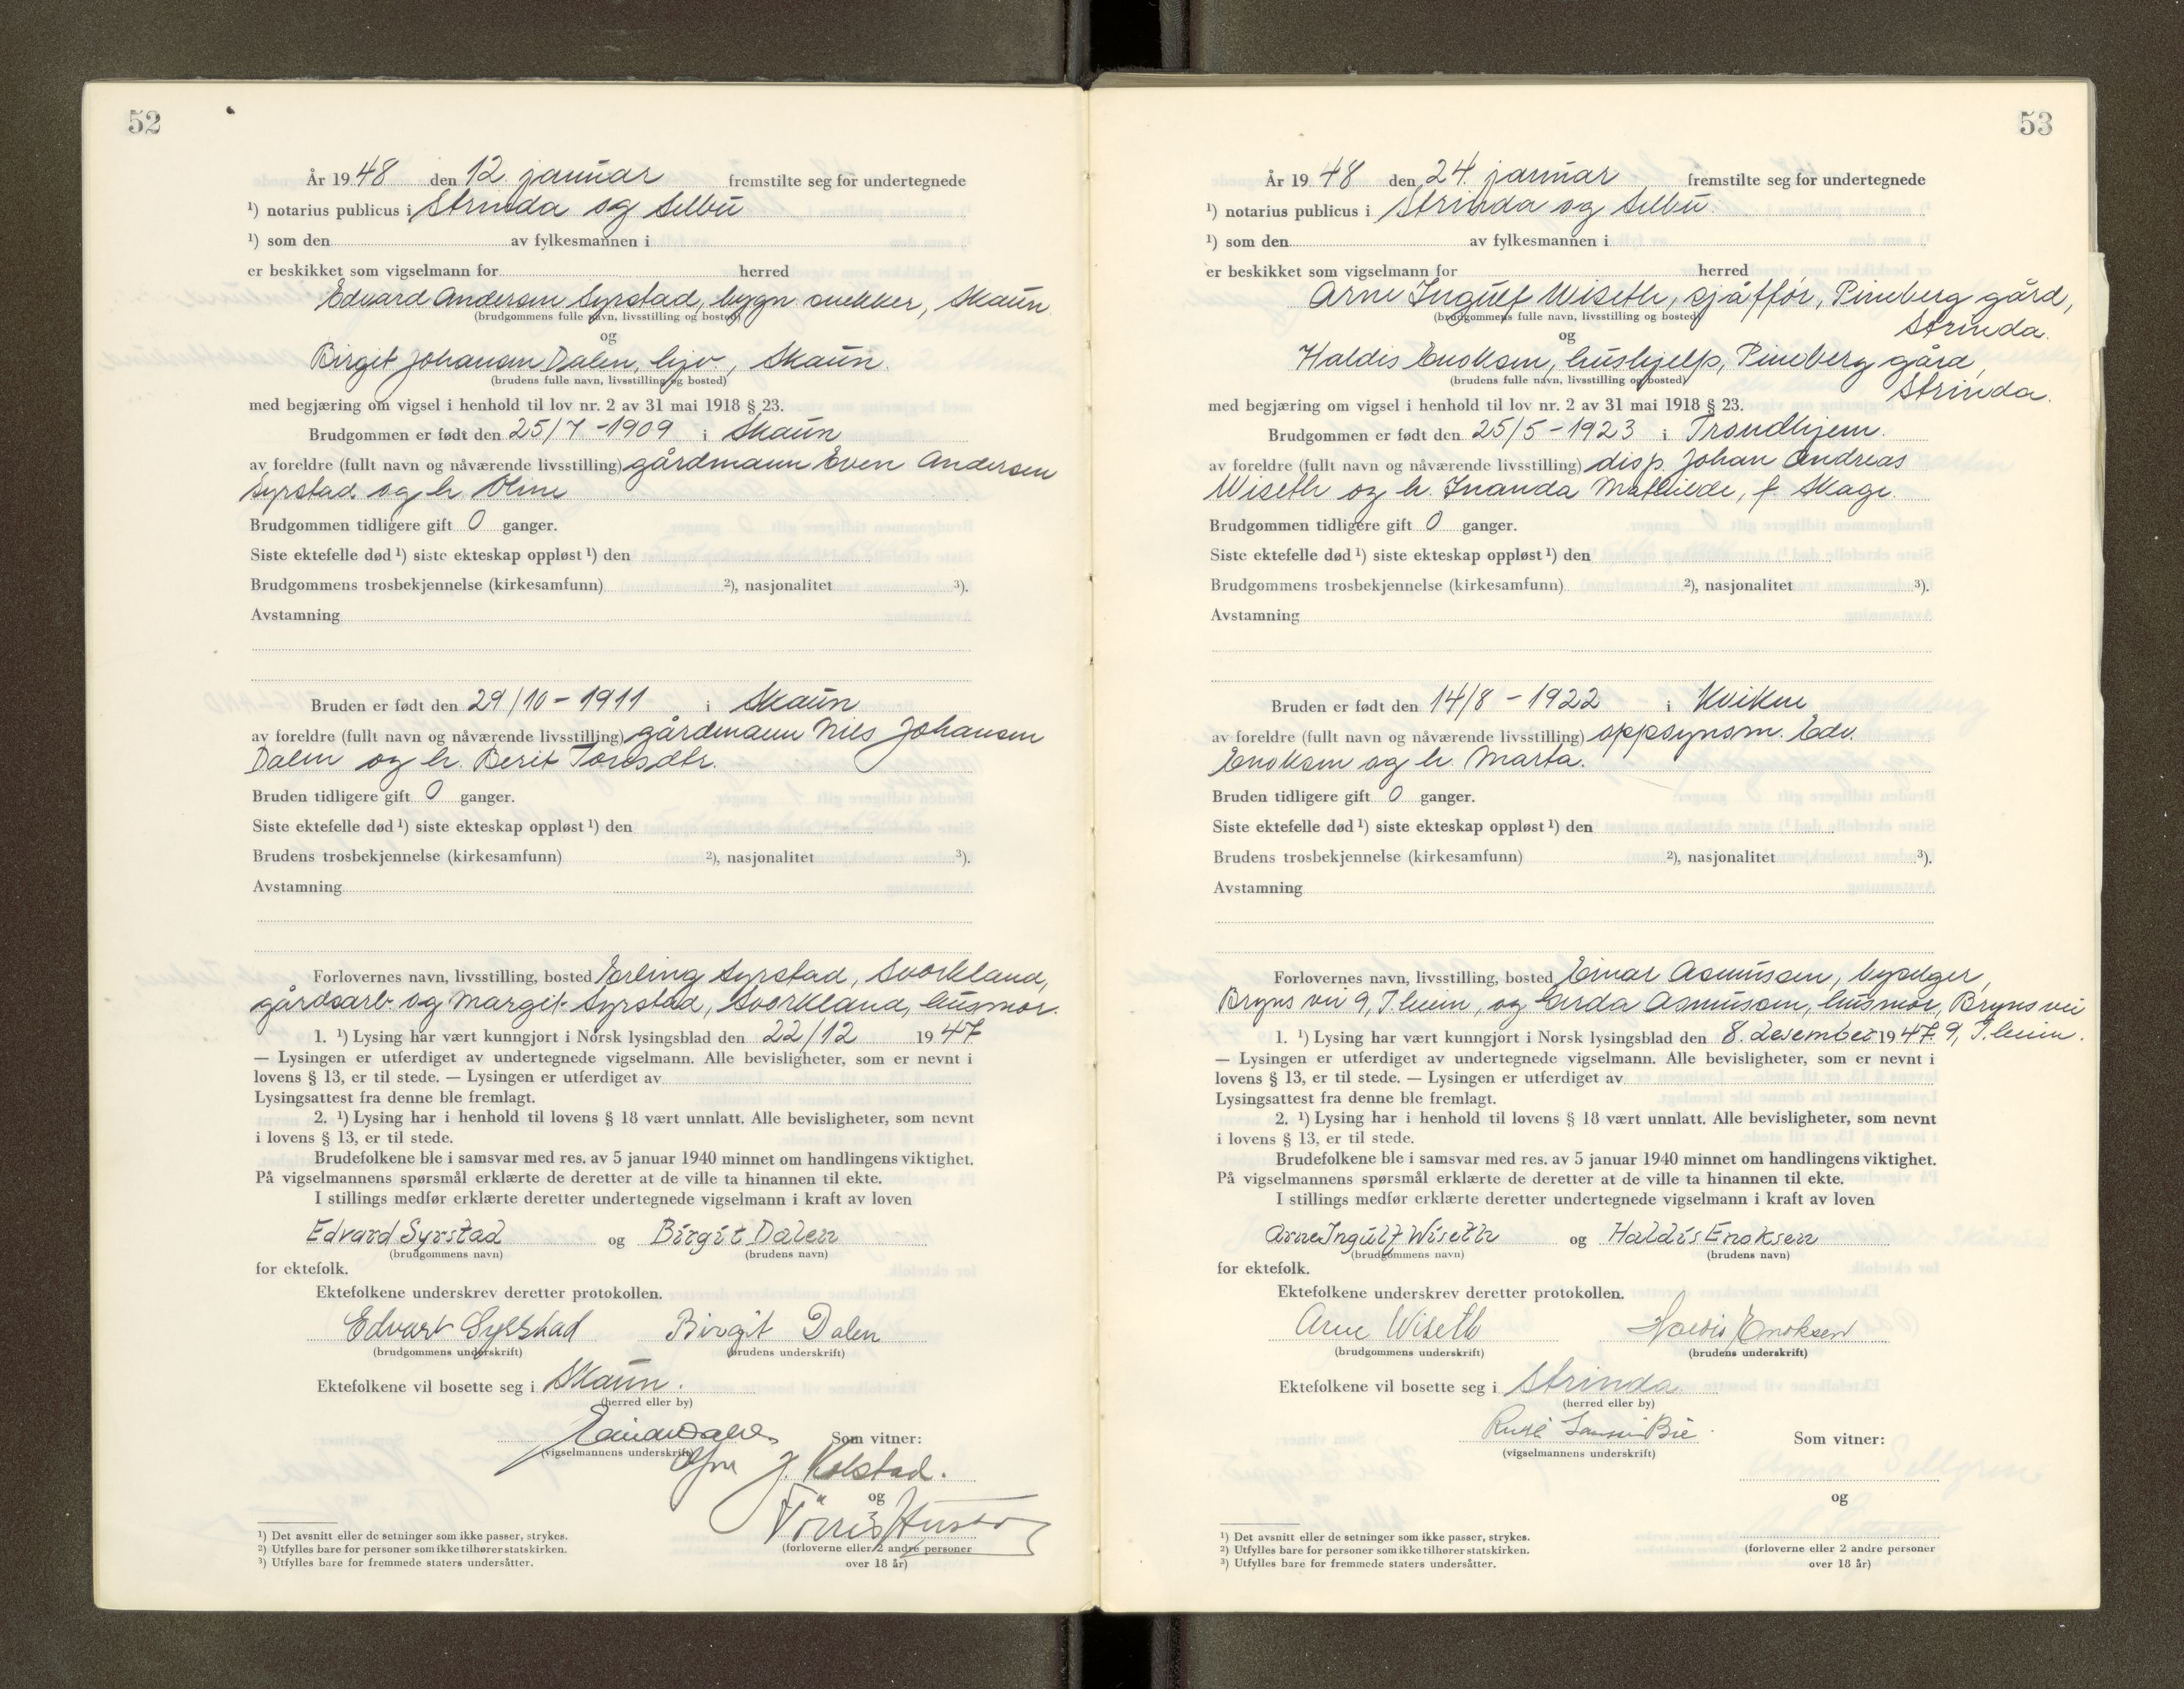 52
År 1948 den 12. januar fremstilte seg for undertegnede
¹) notarius publicus i Strinda og Selbu
¹) som den av fylkesmannen i
er beskikket som vigselmann for herred
Edvard Andersen Syrstad, bygn. snekker, Skaun
(brudgommens fulle navn, livsstilling og bosted)
og
Birgit Johansen Dalen, hjv., Skaun.
(brudens fulle navn, livsstilling og bosted)
med begjæring om vigsel i henhold til lov nr. 2 av 31 mai 1918 § 23.
Brudgommen er født den 25/7-1909 i Skaun
av foreldre (fullt navn og nåværende livsstilling) gårdmann Even Andersen
Syrstad og h. Oline
Brudgommen tidligere gift 0 ganger.
Siste ektefelle død ¹) siste ekteskap oppløst ¹) den
Brudgommens trosbekjennelse (kirkesamfunn) ²), nasjonalitet ³).
Avstamning
Bruden er født den 29/10-1911 i Skaun
av foreldre (fullt navn og nåværende livsstilling) gårdmann Nils Johansen
Dalen og h. Berit Toresdtr.
Bruden tidligere gift 0 ganger.
Siste ektefelle død ¹) siste ekteskap oppløst ¹) den
Brudens trosbekjennelse (kirkesamfunn) ²), nasjonalitet ³).
Avstamning
Forlovernes navn, livsstilling, bosted Erling Syrstad, Svorkland,
gårdsarb. og Margit Syrstad, Svorkland, husmor.
1. ¹) Lysing har vært kunngjort i Norsk lysingsblad den 22/12 1947
— Lysingen er utferdiget av undertegnede vigselmann. Alle bevisligheter, som er nevnt i
lovens § 13, er til stede. — Lysingen er utferdiget av
Lysingsattest fra denne ble fremlagt.
2. ¹) Lysing har i henhold til lovens § 18 vært unnlatt. Alle bevisligheter, som nevnt
i lovens § 13, er til stede.
Brudefolkene ble i samsvar med res. av 5 januar 1940 minnet om handlingens viktighet.
På vigselmannens spørsmål erklærte de deretter at de ville ta hinannen til ekte.
I stillings medfør erklærte deretter undertegnede vigselmann i kraft av loven
Edvard Syrstad og Birgit Dalen
(brudgommens navn) (brudens navn)
for ektefolk.
Ektefolkene underskrev deretter protokollen.
Edvart Syrstad Birgit Dalen
(brudgommens underskrift) (brudens underskrift)
Ektefolkene vil bosette seg i Skaun.
(herred eller by)
Som vitner:
(vigselmannens underskrift)
J. Kolstad.
og
(forloverne eller 2 andre personer
over 18 år)
¹) Det avsnitt eller de setninger som ikke passer, strykes.
²) Utfylles bare for personer som ikke tilhører statskirken.
³) Utfylles bare for fremmede staters undersåtter.
53
År 1948 den 24. januar fremstilte seg for undertegnede
¹) notarius publicus i Strinda og Selbu
¹) som den av fylkesmannen i
er beskikket som vigselmann for herred
Arne Ingulf Wiseth, sjåffør, Pineberg gård,
(brudgommens fulle navn, livsstilling og bosted)
Strinda.
og
Haldis Enoksen, hushjelp, Pineberg gård,
(brudens fulle navn, livsstilling og bosted)
Strinda.
med begjæring om vigsel i henhold til lov nr. 2 av 31 mai 1918 § 23.
Brudgommen er født den 25/5-1923 i Trondhjem.
av foreldre (fullt navn og nåværende livsstilling) disp. Johan Andreas
Wiseth og h. Inanda Mathilde, f. Skage.
Brudgommen tidligere gift 0 ganger.
Siste ektefelle død ¹) siste ekteskap oppløst ¹) den
Brudgommens trosbekjennelse (kirkesamfunn) ²), nasjonalitet ³).
Avstamning
Bruden er født den 14/8-1922 i Kvikne
av foreldre (fullt navn og nåværende livsstilling) oppsynsm. Edv.
Enoksen og h. Marta.
Bruden tidligere gift 0 ganger.
Siste ektefelle død ¹) siste ekteskap oppløst ¹) den
Brudens trosbekjennelse (kirkesamfunn) ²), nasjonalitet ³).
Avstamning
Forlovernes navn, livsstilling, bosted Einar Asmussen, byselger,
Bryns vei 9, T.heim, og Gerda Asmussen, husmor, Bryns vei
1. ¹) Lysing har vært kunngjort i Norsk lysingsblad den 8. desember 1947 9, T.heim.
— Lysingen er utferdiget av undertegnede vigselmann. Alle bevisligheter, som er nevnt i
lovens § 13, er til stede. — Lysingen er utferdiget av
Lysingsattest fra denne ble fremlagt.
2. ¹) Lysing har i henhold til lovens § 18 vært unnlatt. Alle bevisligheter, som nevnt
i lovens § 13, er til stede.
Brudefolkene ble i samsvar med res. av 5 januar 1940 minnet om handlingens viktighet.
På vigselmannens spørsmål erklærte de deretter at de ville ta hinannen til ekte.
I stillings medfør erklærte deretter undertegnede vigselmann i kraft av loven
Arne Ingulf Wiseth og Haldis Enoksen
(brudgommens navn) (brudens navn)
for ektefolk.
Ektefolkene underskrev deretter protokollen.
Arne Wiseth Haldis Enoksen
(brudgommens underskrift) (brudens underskrift)
Ektefolkene vil bosette seg i Strinda.
(herred eller by)
Som vitner:
(vigselmannens underskrift)
og
(forloverne eller 2 andre personer
over 18 år)
¹) Det avsnitt eller de setninger som ikke passer, strykes.
²) Utfylles bare for personer som ikke tilhører statskirken.
³) Utfylles bare for fremmede staters undersåtter.